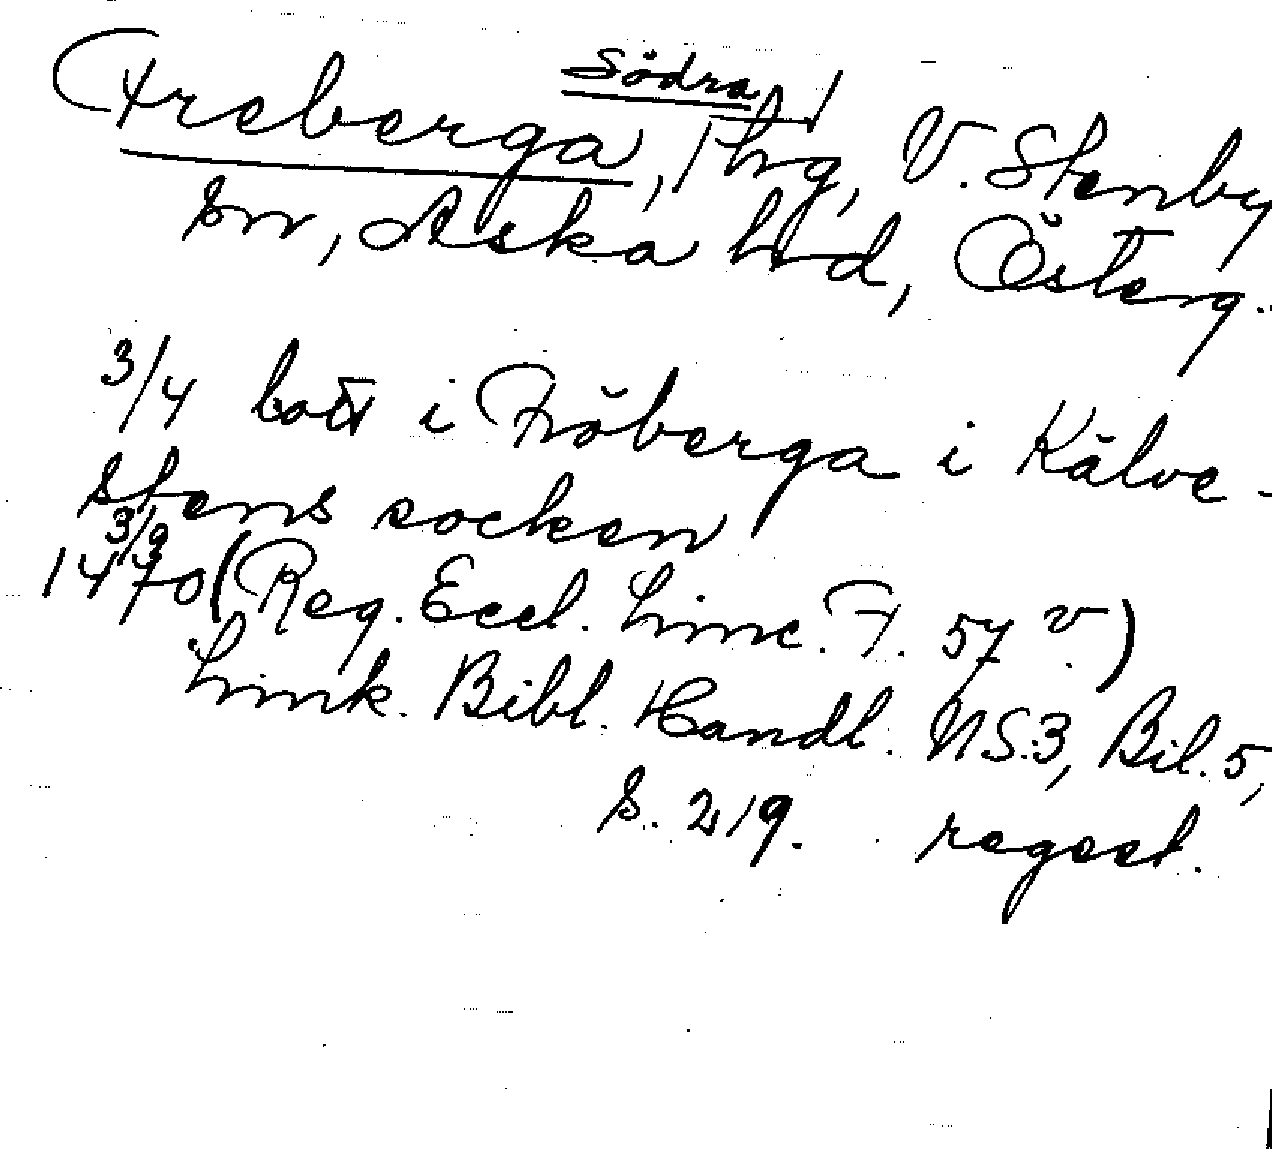 Freberga, Södra, hg, V. Stenby
sn, Aska hd, Österg.
3/4 bott i Fröberga i Kälve-
stens socken
3/9
1470 (Reg. Eccl. Linc. F. 57 v.)
Link. Bibl. Handl. NS.3, Bil. 5,
s. 219. regest.